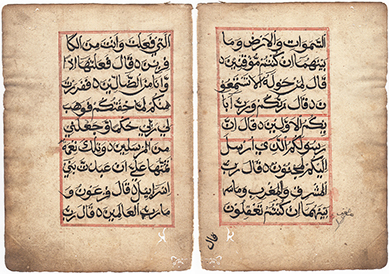 السموات والارض وما
بينهما ان كنتم موقنين ه
قال لمن حوله الا تستمعو
ن ه قال ربكم ورب ابا
ئكم الاولين ه قال ان
رسولكم الذي ارسل
اليكم لمجنون ه قال رب
المشرق والمغرب وما
بينهما ان كنتم تعقلون
قال
التي فعلت وانت من الكا
فرين ه قال فعلتها اذا
وانا من الضالين ه ففررت
منكم لما خفتكم فوهب
لي ربي حكما وجعلني
من المرسلين ه وتلك نعمة
تمنها علي ان عبدت بني
اسرائيل قال فرعون و
ما رب العالمين ه قال رب